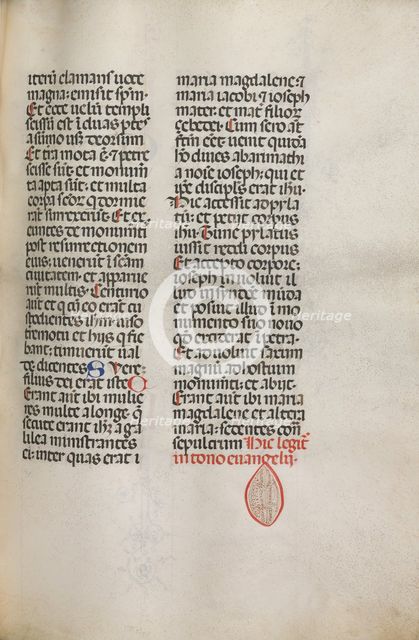 iterū clamans uoce
magna: emisit spm̄.
Et ecce uelū templi
scissū est ī duas ptes
a sūmo usꝗ deorsum
Et t̄ra mota ē: ⁊ petre
scisse sūt: et monum̄
ta apta sūt: et multa
corpa scōꝝ q̄ dormie
rāt surrexerūt. Et ex
eūntes de monum̄
post resurrectionem
eius: uenerūt ī scām
ciuitatem: et apparue
rūt multis. Centurio
aūt et q̄ cū eo erāt cu
stodientes ihm̄: uiso
t̄remotu et hys q̄ fie
bant: timuerūt ual
de dicentes. S Vere
filius dei erat iste C
Erant aūt ibi mulie
res multe a longe: q̄
secute erant ihm̄ a ga
lilea ministrantes
ei: inter quas erat
maria magdalene: ⁊
maria iacobi ⁊ ioseph
mater: et mat̄ filioꝝ
çebedei. Cum sero aūt
factum eēt: uenit quidā
hō diues ab arimathi
a noīe ioseph: qui et
ipse discipls erat ihu:
Hic accessit ad pyla
tū: et petijt corpus
ihu: Tunc pylatus
iussit reddi corpus
Et accepto corpore:
ioseph inuoluit il
lud in syndone mūda
et posuit illud ī mo
numento suo nouo
qd̄ exciderat ī petra.
Et aduoluit saxum
magnū ad hostium
monumti: et abijt.
Erant aūt ibi maria
magdalene et altera
maria: sedentes con̄
sepulcrum Hic legit̄
in tono euangelij.
Heritage
Heritage
Heritage
Heritage
©